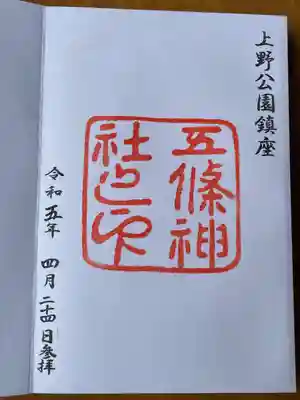 上野公園鎮座
五條神
社之印
令和五年 四月 二十四日参拝